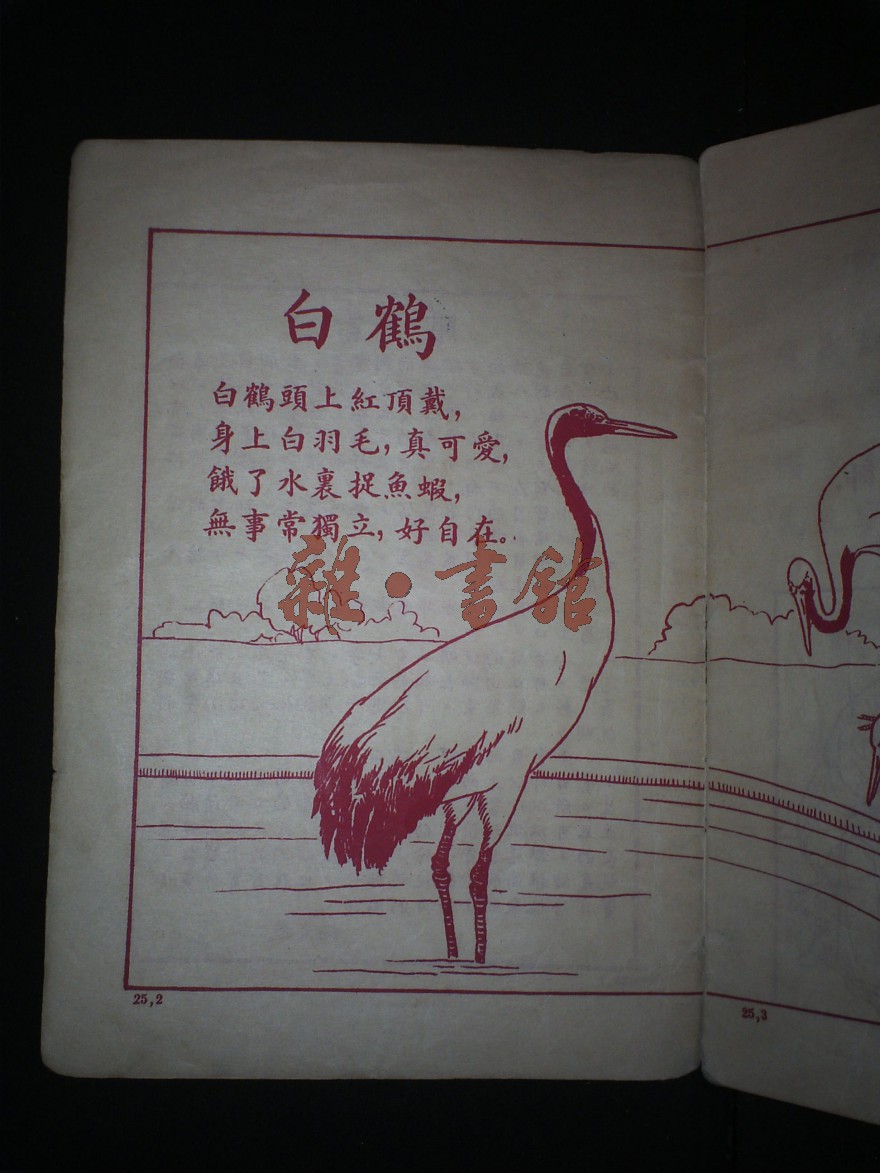 白鶴
白鶴頭上紅頂戴，
身上白羽毛，真可愛，
餓了水裏捉魚蝦，
無事常獨立，好自在。
雜·書館
25,2
25,3